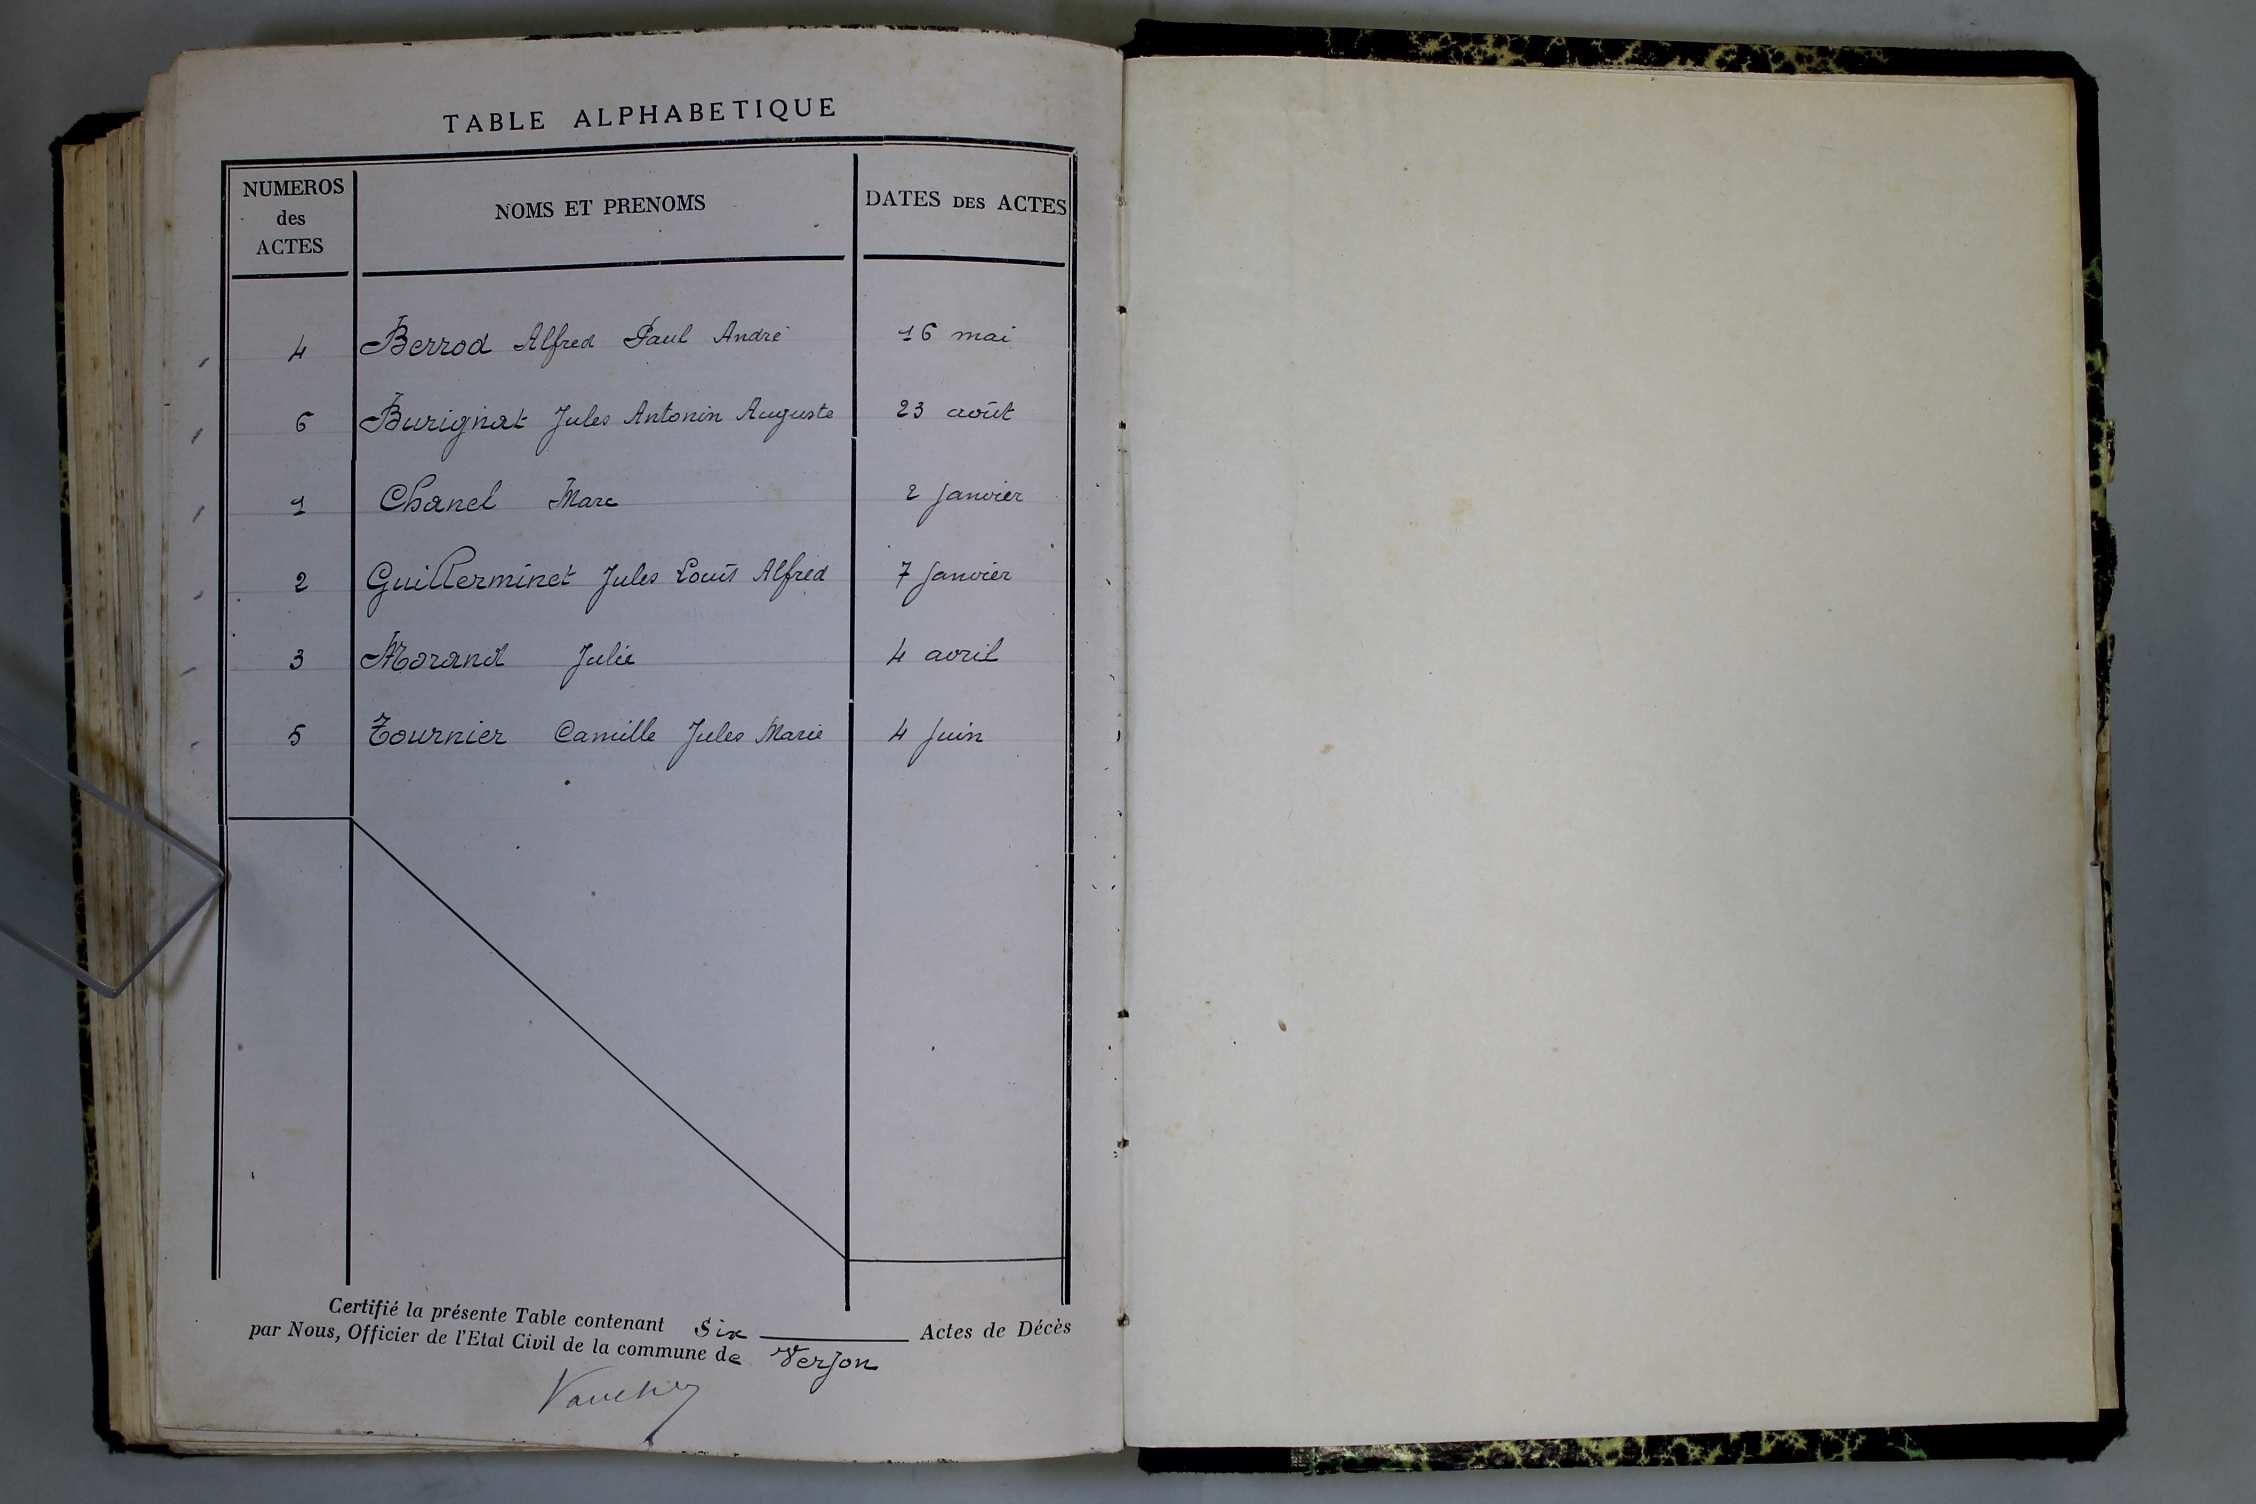 TABLE ALPHABETIQUE
NUMEROS des ACTES NOMS ET PRENOMS DATES DES ACTES
4 Berrod Alfred Paul André 16 mai
6 Burignat Jules Antonin Auguste 23 août
1 Chanel Marc 2 Janvier
2 Guillerminet Jules Louis Alfred 7 Janvier
3 Morand Julie 4 avril
5 Tournier Camille Jules Marie 4 Juin
Certifié la présente Table contenant Six Actes de Décès
par Nous, Officier de l'Etat Civil de la commune de Verjon